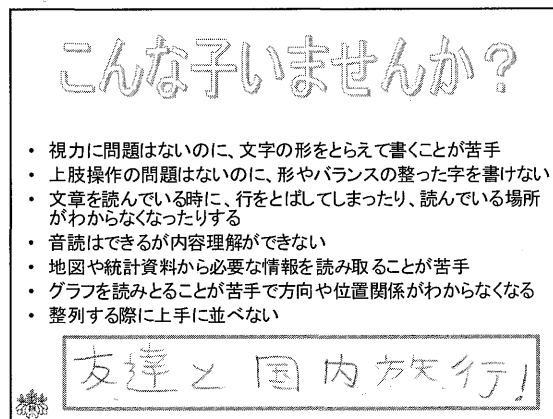 こんな子いませんか？
・ 視力に問題はないのに、文字の形をとらえて書くことが苦手
・ 上肢操作の問題はないのに、形やバランスの整った字を書けない
・ 文章を読んでいる時に、行をとばしてしまったり、読んでいる場所
がわからなくなったりする
・ 音読はできるが内容理解ができない
・ 地図や統計資料から必要な情報を読み取ることが苦手
・ グラフを読みとることが苦手で方向や位置関係がわからなくなる
・ 整列する際に上手に並べない
友達と国内旅行!